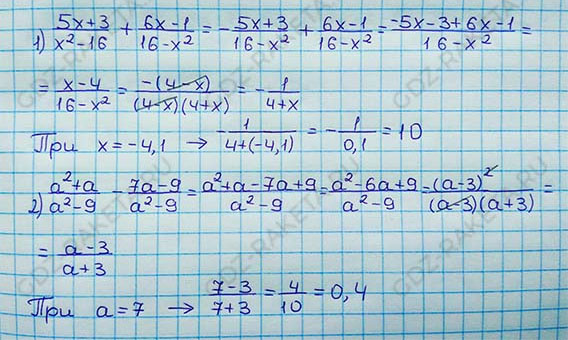 1) (5x+3)/(x²-16) + (6x-1)/(16-x²) = -(5x+3)/(16-x²) + (6x-1)/(16-x²) = (-5x-3+6x-1)/(16-x²) =
= (x-4)/(16-x²) = (-(4-x))/((4-x)(4+x)) = -1/(4+x)
При x=-4,1 → -1/(4+(-4,1)) = -1/0,1 = 10
2) (a²+a)/(a²-9) - (7a-9)/(a²-9) = (a²+a-7a+9)/(a²-9) = (a²-6a+9)/(a²-9) = (a-3)²/((a-3)(a+3)) =
= (a-3)/(a+3)
При a=7 → (7-3)/(7+3) = 4/10 = 0,4
GDZ-RAKETA.RU